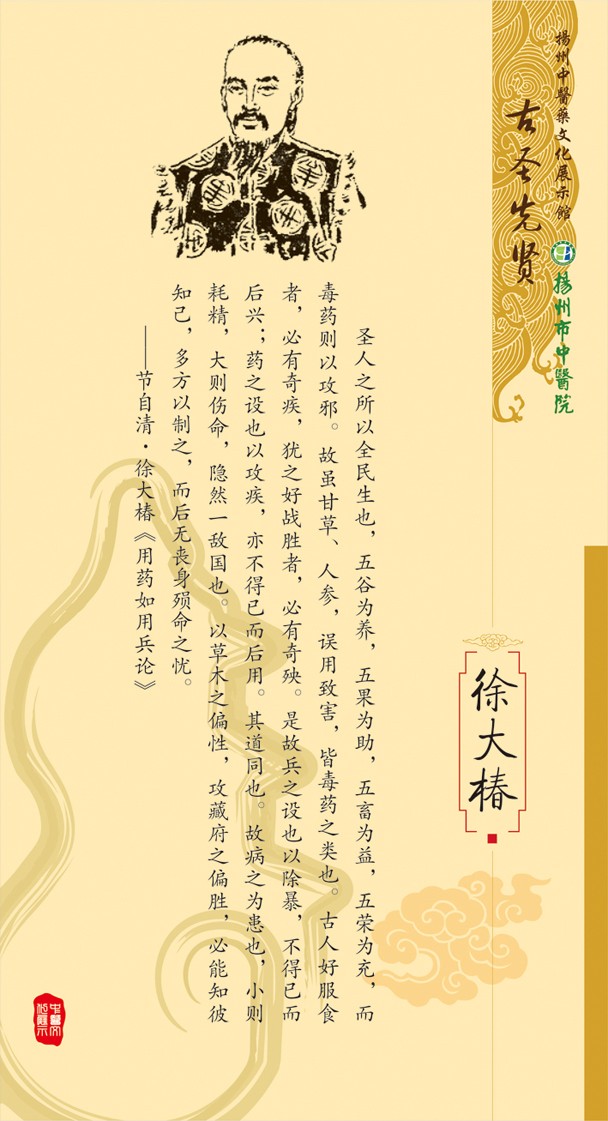 揚州中醫藥文化展示館
古圣先贤
揚州市中醫院
徐大椿
圣人之所以全民生也，五谷为养，五果为助，五畜为益，五荣为充，而
毒药则以攻邪。故虽甘草、人参，误用致害，皆毒药之类也。古人好服食
者，必有奇疾，犹之好战胜者，必有奇殃。是故兵之设也以除暴，不得已而
后兴；药之设也以攻疾，亦不得已而后用。其道同也。故病之为患也，小则
耗精，大则伤命，隐然一敌国也。以草木之偏性，攻藏府之偏胜，必能知彼
知己，多方以制之，而后无丧身殒命之忧。
——节自清·徐大椿《用药如用兵论》